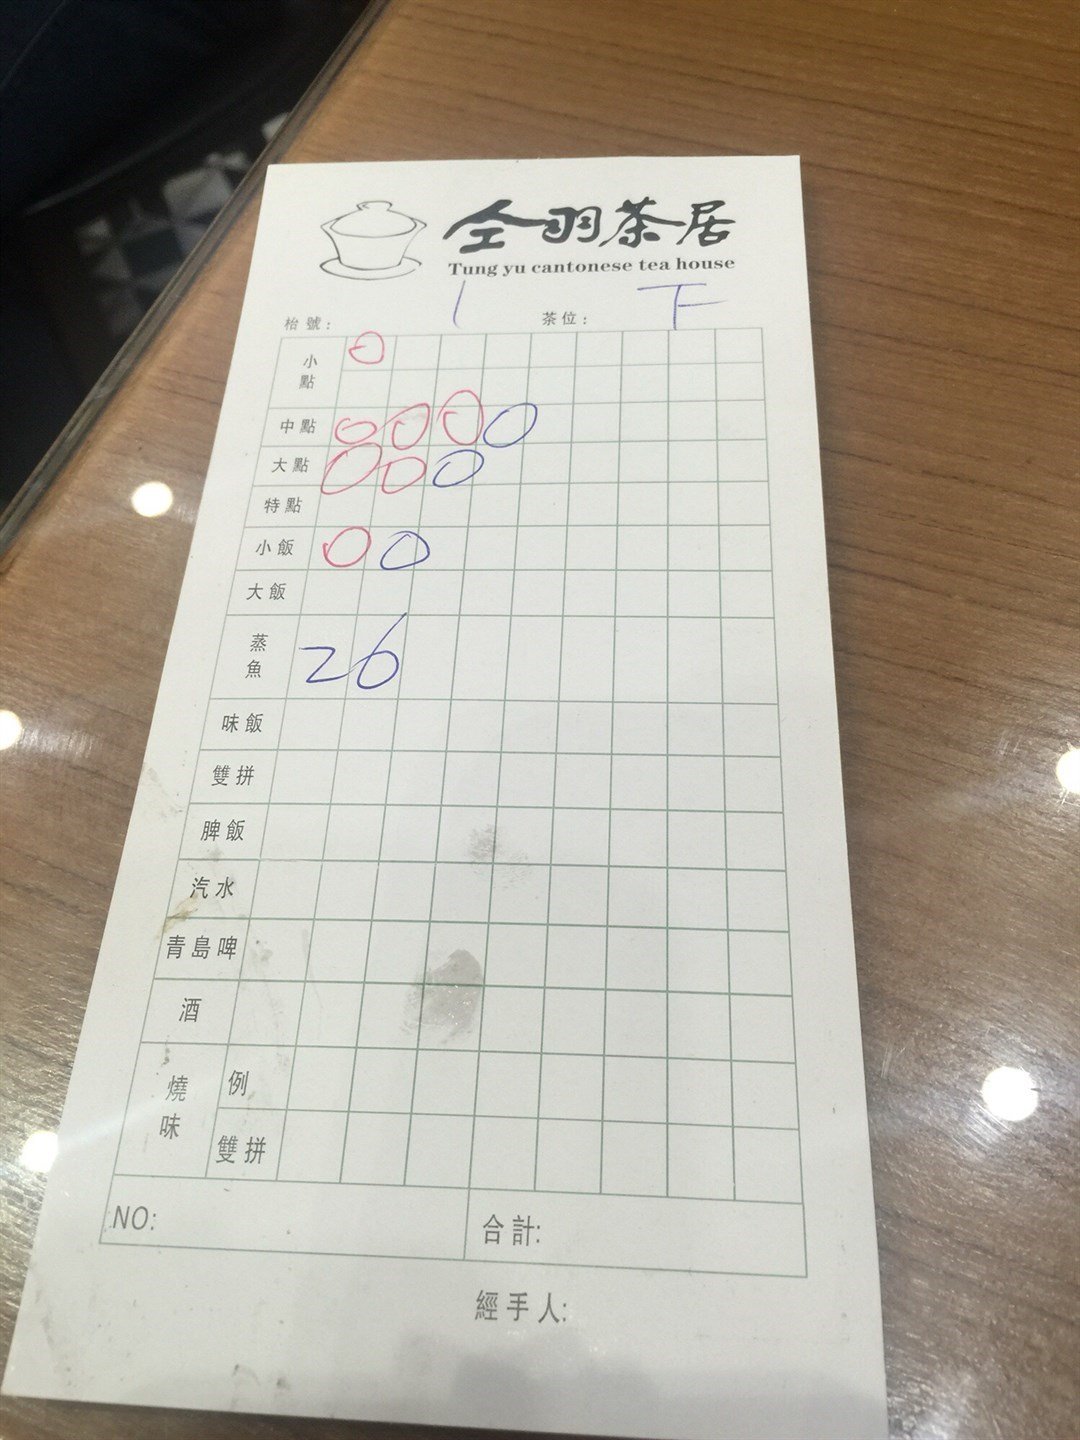 仝羽茶居
Tung yu cantonese tea house
枱號: 1 茶位: 下
小點
中點
大點
特點
小飯
大飯
蒸魚 26
味飯
雙拼
脾飯
汽水
青島啤
酒
燒味 例
雙拼
NO: 合計:
經手人: